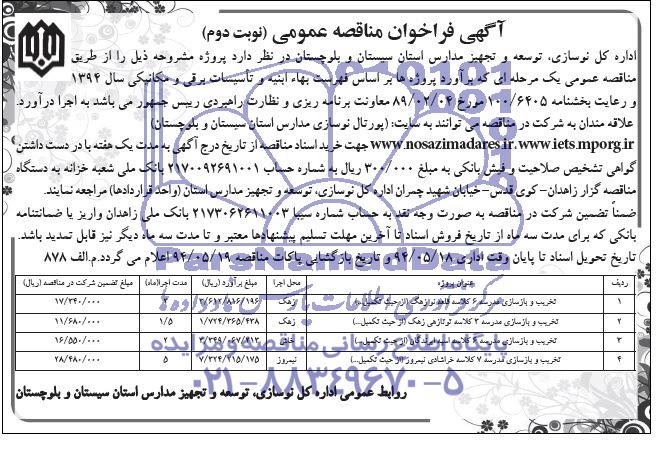 آگهی فراخوان مناقصه عمومی (نوبت دوم)
اداره کل نوسازی، توسعه و تجهیز مدارس استان سیستان و بلوچستان در نظر دارد پروژه مشروحه ذیل را از طریق
مناقصه عمومی یک مرحله ای که برآورد پروژه ها بر اساس فهرست بهاء ابنیه و تأسیسات برقی و مکانیکی سال ۱۳۹۴
و رعایت بخشنامه ۱۰۰/۶۴۰۵ مورخ ۸۹/۰۲/۰۴ معاونت برنامه ریزی و نظارت راهبردی رییس جمهور می باشد به اجرا درآورد.
علاقه مندان به شرکت در مناقصه می توانند به سایت: (پورتال نوسازی مدارس استان سیستان و بلوچستان)
www.nosazimadares.ir، www.iets.mporg.ir جهت خرید اسناد مناقصه از تاریخ درج آگهی به مدت یک هفته با در دست داشتن
گواهی تشخیص صلاحیت و فیش بانکی به مبلغ ۳۰۰/۰۰۰ ریال به شماره حساب ۲۱۷۰۰۹۲۶۹۱۰۰۱ بانک ملی شعبه خزانه به دستگاه
مناقصه گزار زاهدان- کوی قدس- خیابان شهید چمران اداره کل نوسازی، توسعه و تجهیز مدارس استان (واحد قراردادها) مراجعه نمایند.
ضمناً تضمین شرکت در مناقصه به صورت وجه نقد به حساب شماره سیبا ۲۱۷۳۰۶۲۶۱۱۰۰۳ بانک ملی زاهدان واریز یا ضمانتنامه
بانکی که برای مدت سه ماه از تاریخ فروش اسناد تا آخرین مهلت تسلیم پیشنهادها معتبر و تا مدت سه ماه دیگر نیز قابل تمدید باشد.
تاریخ تحویل اسناد تا پایان وقت اداری ۹۴/۰۵/۱۸ و تاریخ بازگشایی پاکات مناقصه ۹۴/۰۵/۱۹ اعلام می گردد.م.الف ۸۷۸
ردیف عنوان پروژه محل اجرا مبلغ برآورد (ریال) مدت اجرا(ماه) مبلغ تضمین شرکت در مناقصه (ریال)
۱ تخریب و بازسازی مدرسه ۶ کلاسه قلعه نو زهک (از حیث تکمیل...) زهک ۳/۶۱۲/۸۸۶/۱۹۶ ۱۷/۳۴۰/۰۰۰
۲ تخریب و بازسازی مدرسه ۳ کلاسه زهک (از حیث تکمیل...) زهک ۱/۷۲۴/۳۶۵/۴۳۸ ۱/۵ ۱۱/۶۸۰/۰۰۰
۳ تخریب و بازسازی مدرسه ۶ کلاسه (از حیث تکمیل...) خاش ۲ ۱۶/۵۵۰/۰۰۰
۴ تخریب و بازسازی مدرسه ۷ کلاسه خراشادی نیمروز (از حیث تکمیل...) نیمروز ۷/۳۲۴/۷۱۵/۱۷۵ ۵ ۲۸/۴۸۰/۰۰۰
روابط عمومی اداره کل نوسازی، توسعه و تجهیز مدارس استان سیستان و بلوچستان
ParsNamadData
پایگاه اطلاع رسانی مناقصه و مزایده
۰۲۱-۸۸۳۴۹۶۷۰-۵